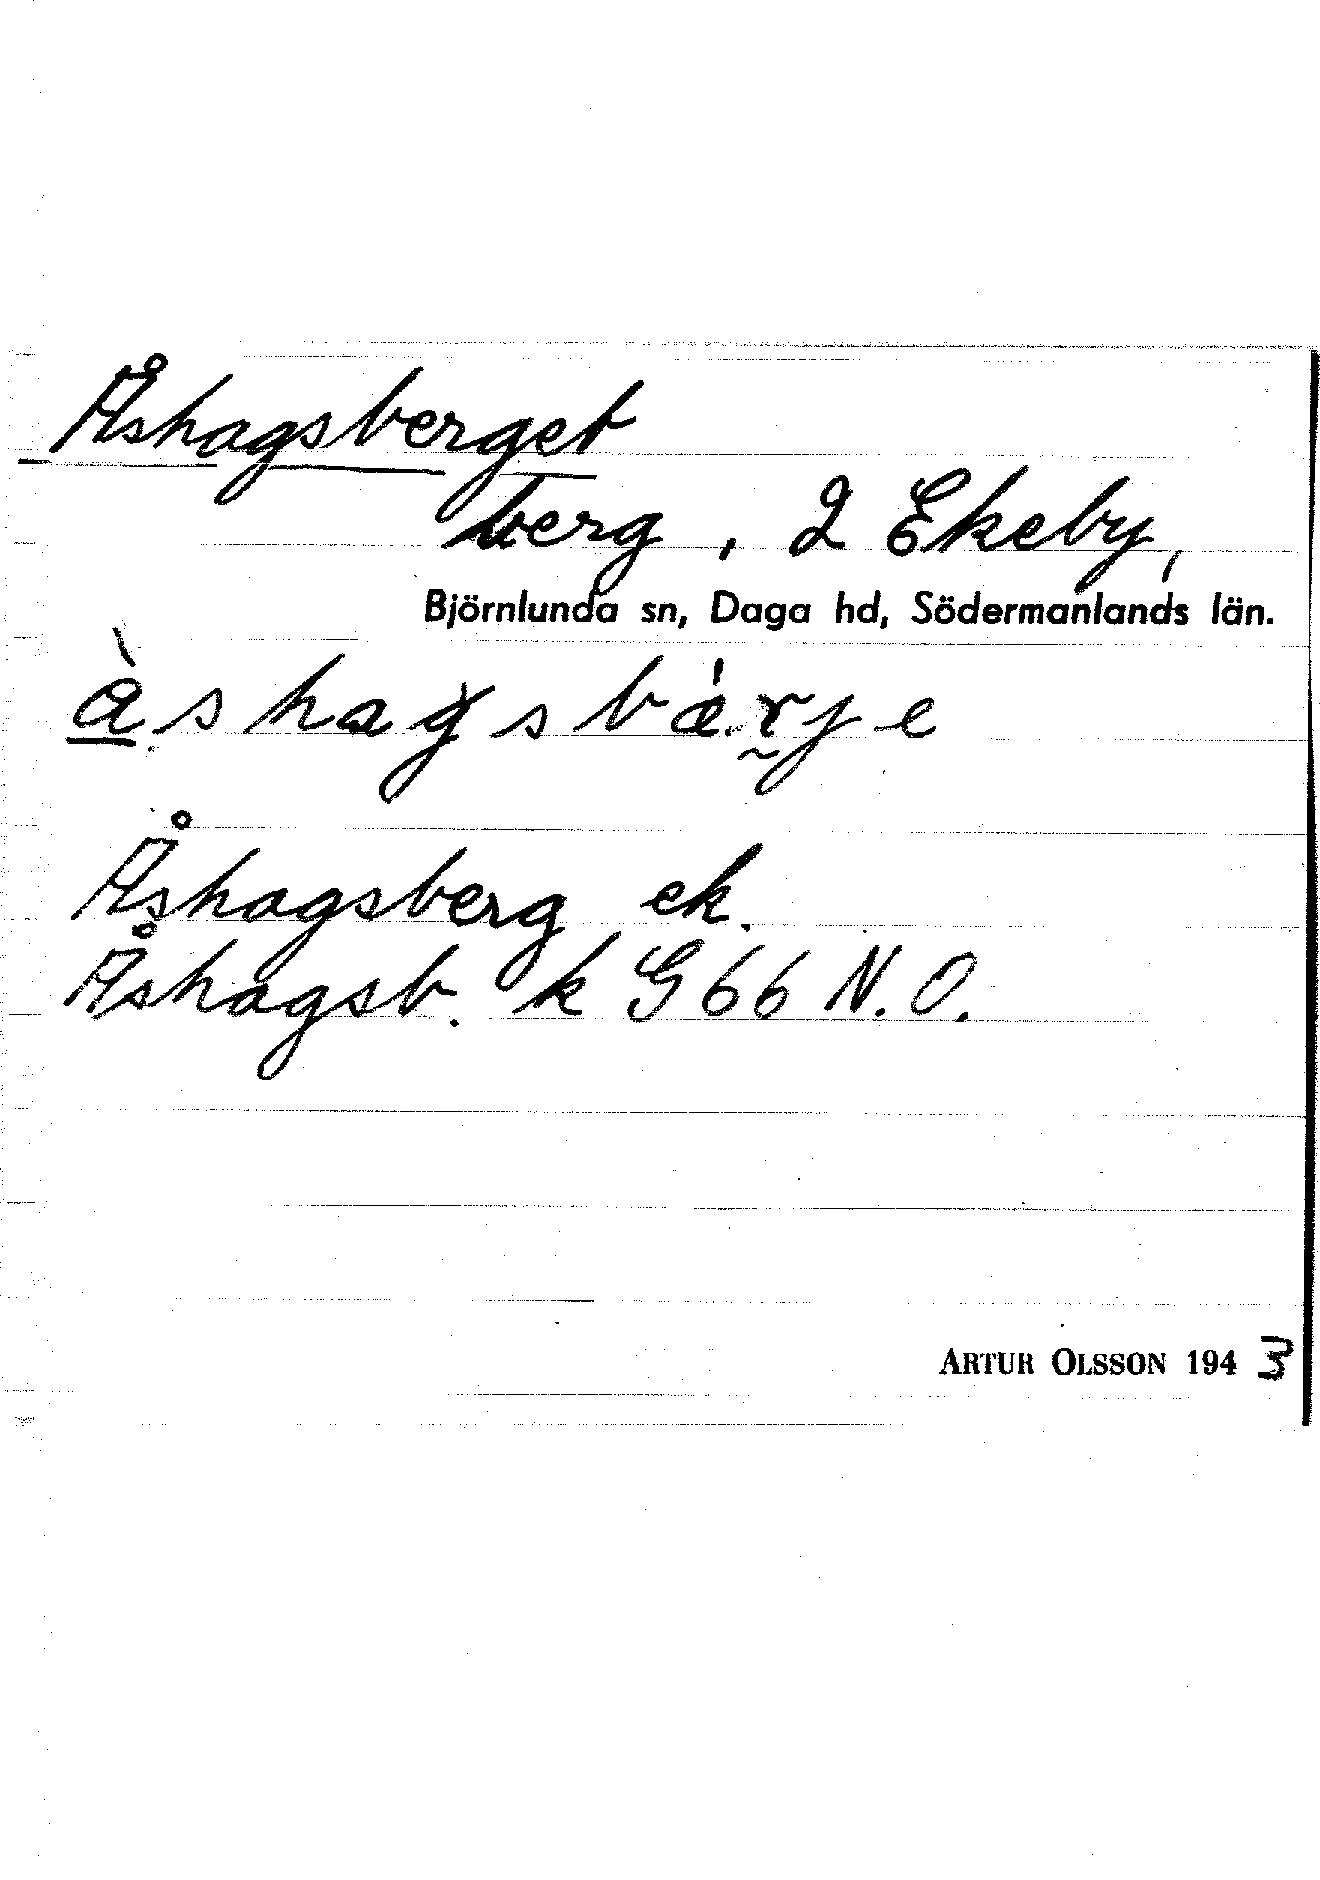 Åshagsberget
berg, 2 Ekeby,
Björnlunda sn, Daga hd, Södermanlands län.
Åshagsberg ek.
Åshagsb. k G 66 N.O.
ARTUR OLSSON 1943